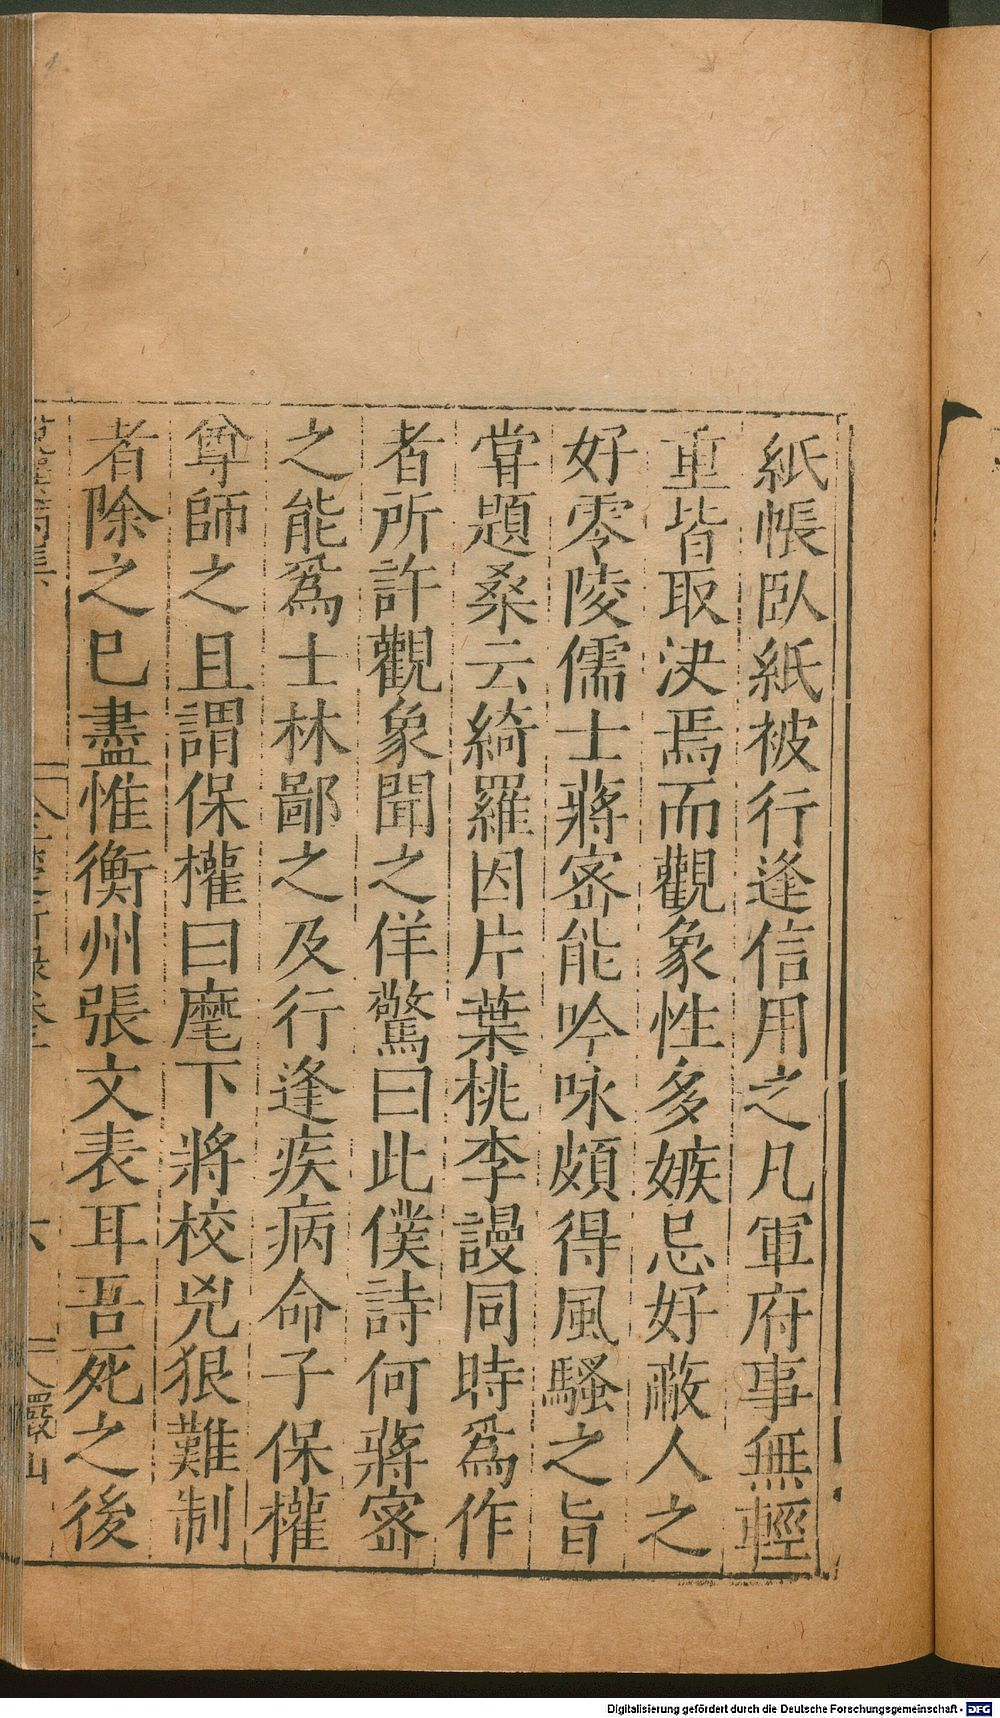 紙帳臥紙被行逢信用之凡軍府事無輕
重皆取決焉而觀象性多嫉忌好蔽人之
好零陵儒士蔣宻能吟咏頗得風騷之旨
甞題桑云綺羅因片葉桃李謾同時爲作
者所許觀象聞之佯驚曰此僕詩何蔣宻
之能爲士林鄙之及行逢疾病命子保權
尊師之且謂保權曰麾下將校兇狠難制
者除之巳盡惟衡州張文表耳吾死之後
六
Digitalisierung gefördert durch die Deutsche Forschungsgemeinschaft - DFG